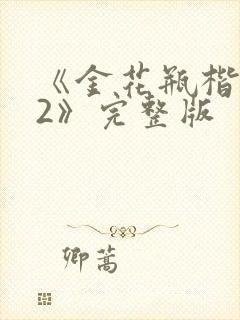 《金花瓶楷
2》完整版
卿蒿